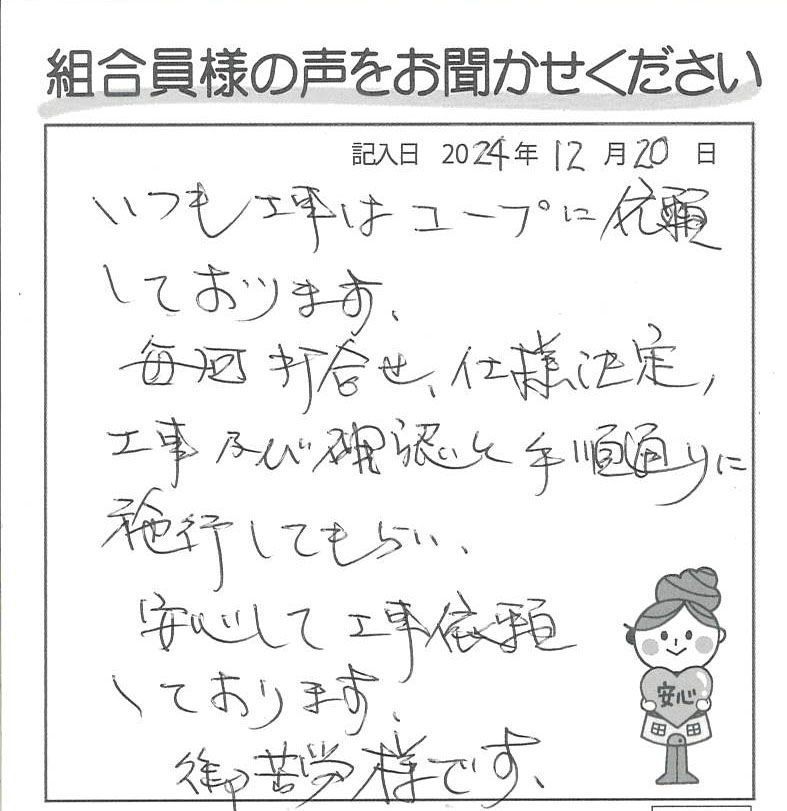 組合員様の声をお聞かせください
記入日 2024年12月20日
いつも工事はコープに依頼
しております、
毎回打合せ、仕様決定,
工事及び確認と手順通りに
施行してもらい、
安心して工事依頼
しております、
御苦労様です、
安心